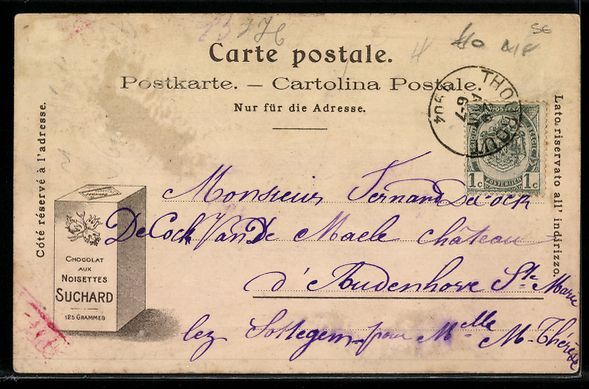 Carte postale.
Postkarte. – Cartolina Postale.
Nur für die Adresse.
Côté réservé à l'adresse.
Lato riservato all' indirizzo.
THOUROUT
1c 1c
CHOCOLAT
AUX
NOISETTES
SUCHARD
125 GRAMMES
Monsieur Fernand Decock
DeCock Van De Maele château
d'Audenhove Ste Marie
lez Sottegem pour Mlle M-Thérèse